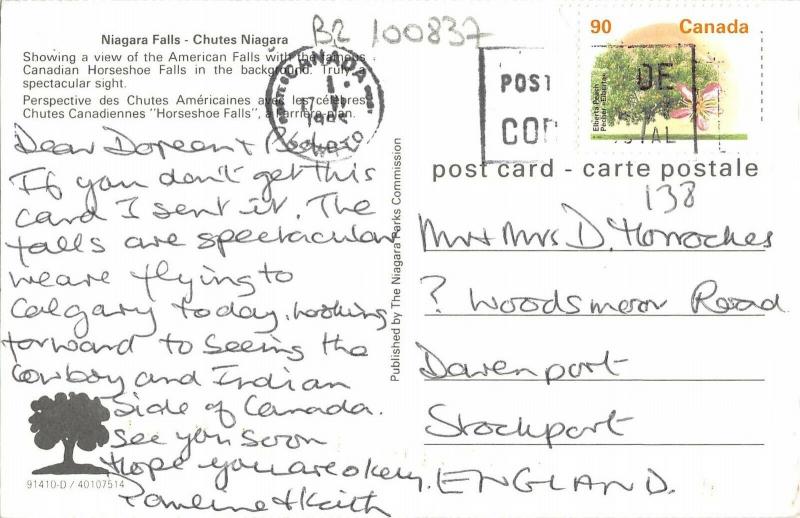 B2 100837
Niagara Falls - Chutes Niagara
Showing a view of the American Falls with the famous
Canadian Horseshoe Falls in the background. Truly
spectacular sight.
Perspective des Chutes Américaines avec les célèbres
Chutes Canadiennes "Horseshoe Falls", à l'arrière-plan.
CANADA
Dear Doreen +
If you don't get this
card I sent it. The
falls are spectacular
we are flying to
Calgary today, looking
forward to seeing the
Cowboy and Indian
Side of Canada.
See you soon
Hope you are okay.
Pauline + Keith
91410-D / 40107514
Published by The Niagara Parks Commission
90 Canada
Elberta Peach
POST
DE
post card - carte postale
138
Mr + Mrs D. Horrockes
? Woodsmoor Road
Davenport
Stockport
ENGLAND.